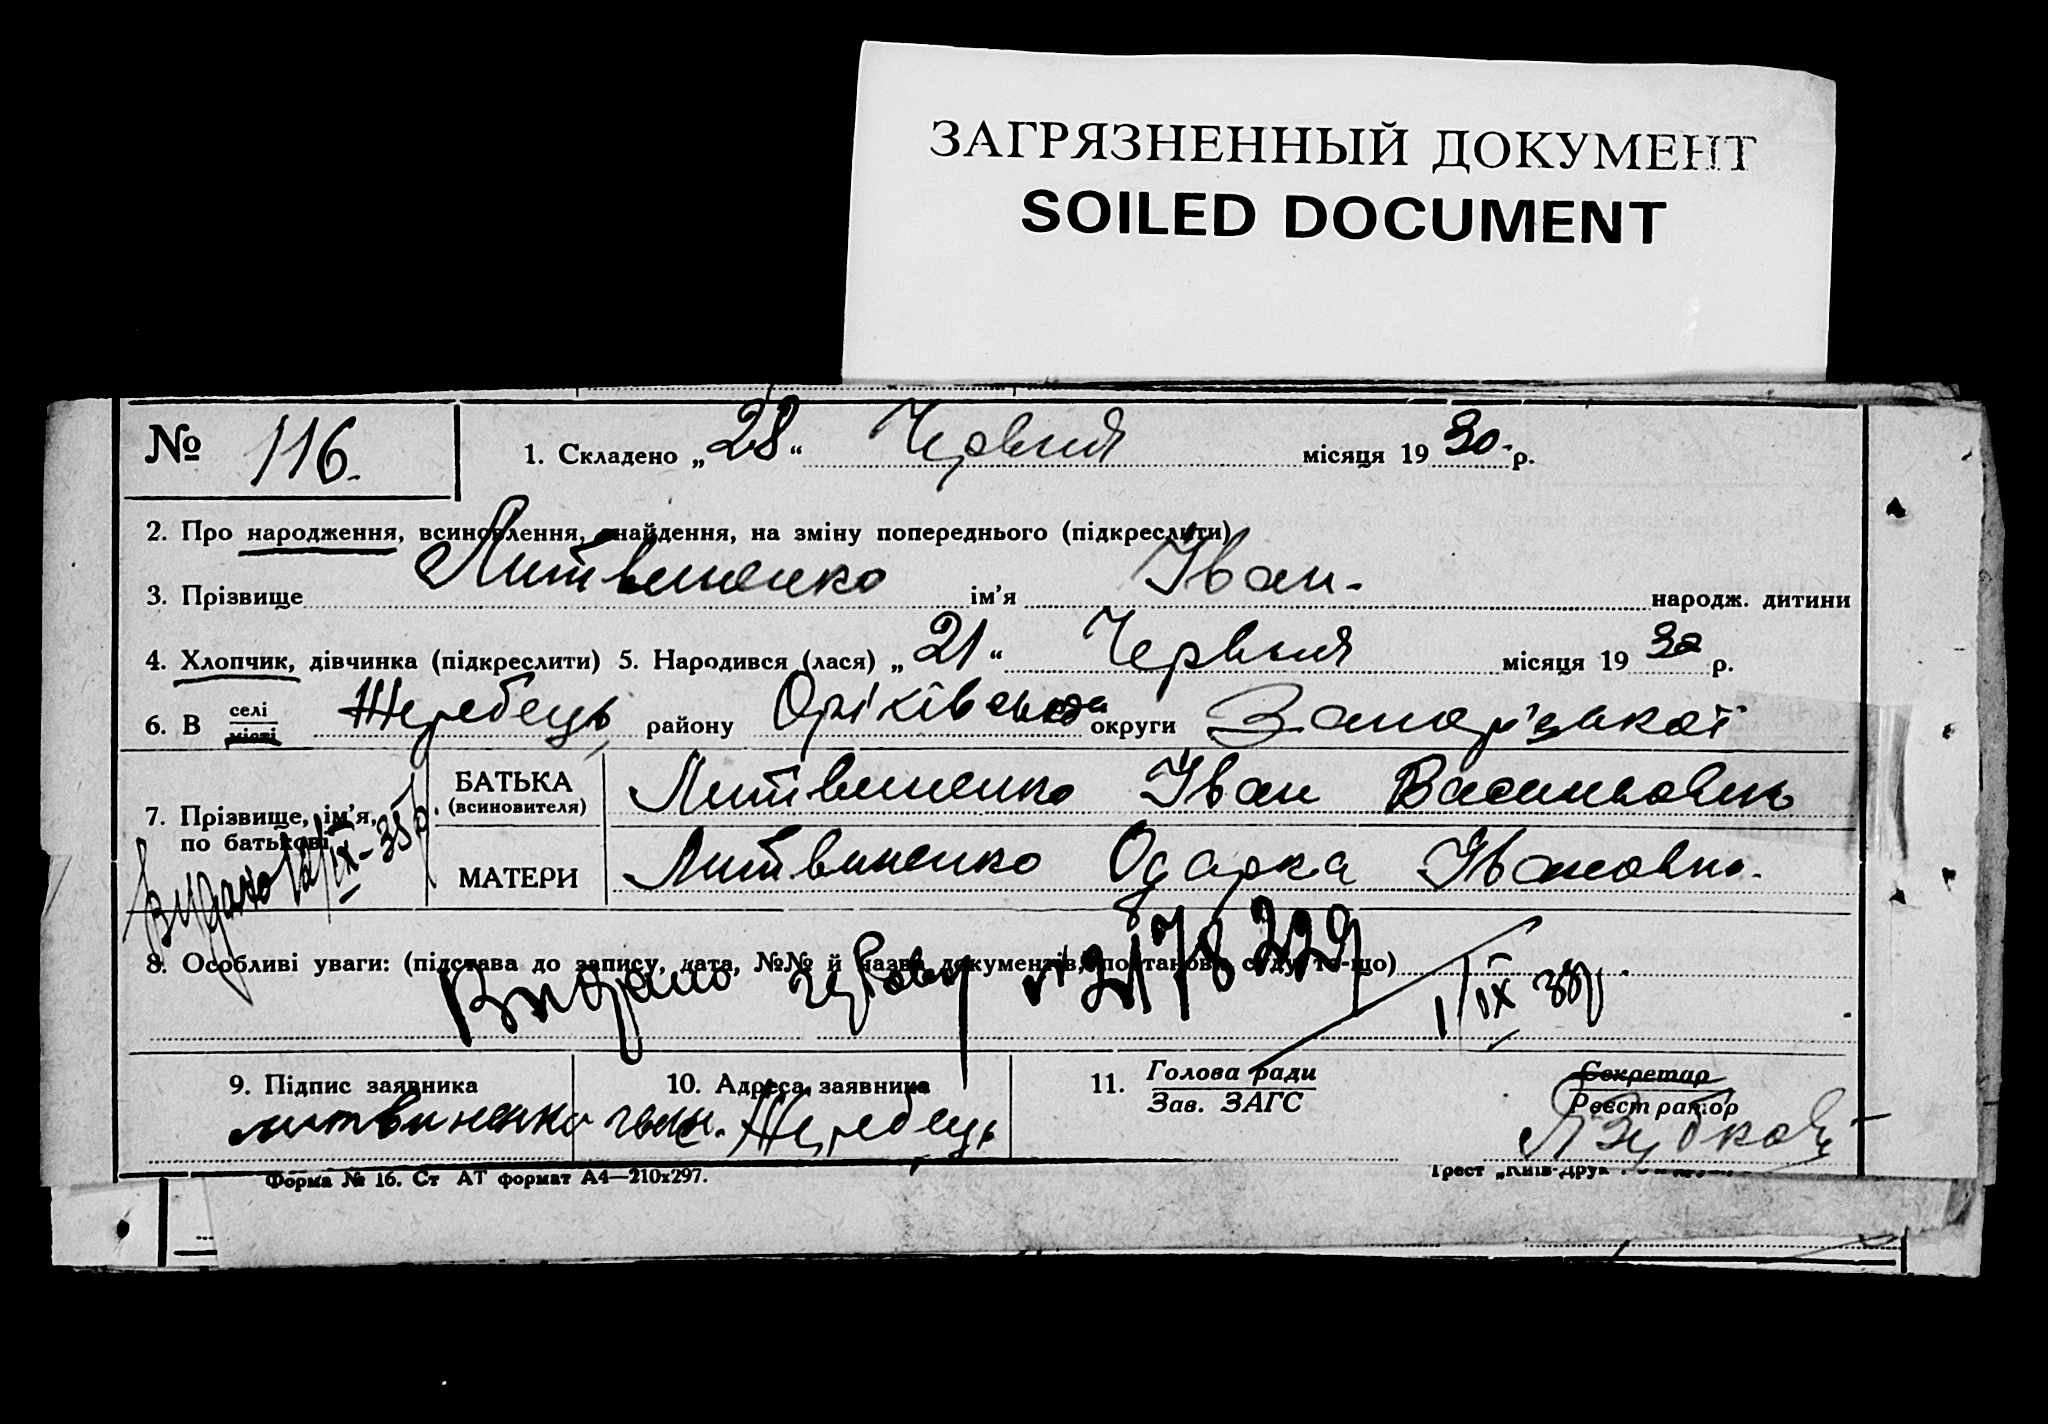 ЗАГРЯЗНЕННЫЙ ДОКУМЕНТ
SOILED DOCUMENT
№ 116. 1. Складено „28“ Червня місяця 1930 р.
2. Про народження, всиновлення, знайдення, на зміну попереднього (підкреслити)
3. Прізвище Литвиненко ім'я Іван. народж. дитини
4. Хлопчик, дівчинка (підкреслити) 5. Народився (лася) „21“ Червня місяця 1930 р.
6. В селі місті Жеребець району Оріхівська округи Запорізької
7. Прізвище, ім'я, по батькові
БАТЬКА (всиновителя) Литвиненко Іван Васильович
МАТЕРИ Литвиненко Одарка Івановна.
Видано 12/IX-35р.
8. Особливі уваги: (підстава до запису, дата, №№ й назва документів, постанова суду то-що)
Видано 229 1/IX
9. Підпис заявника 10. Адреса заявника 11. Голова ради Зав. ЗАГС Секретар Реєстратор
литвиненко Жеребець
Форма № 16. Ст АТ формат А4—210х297. Трест „Київ-Друк